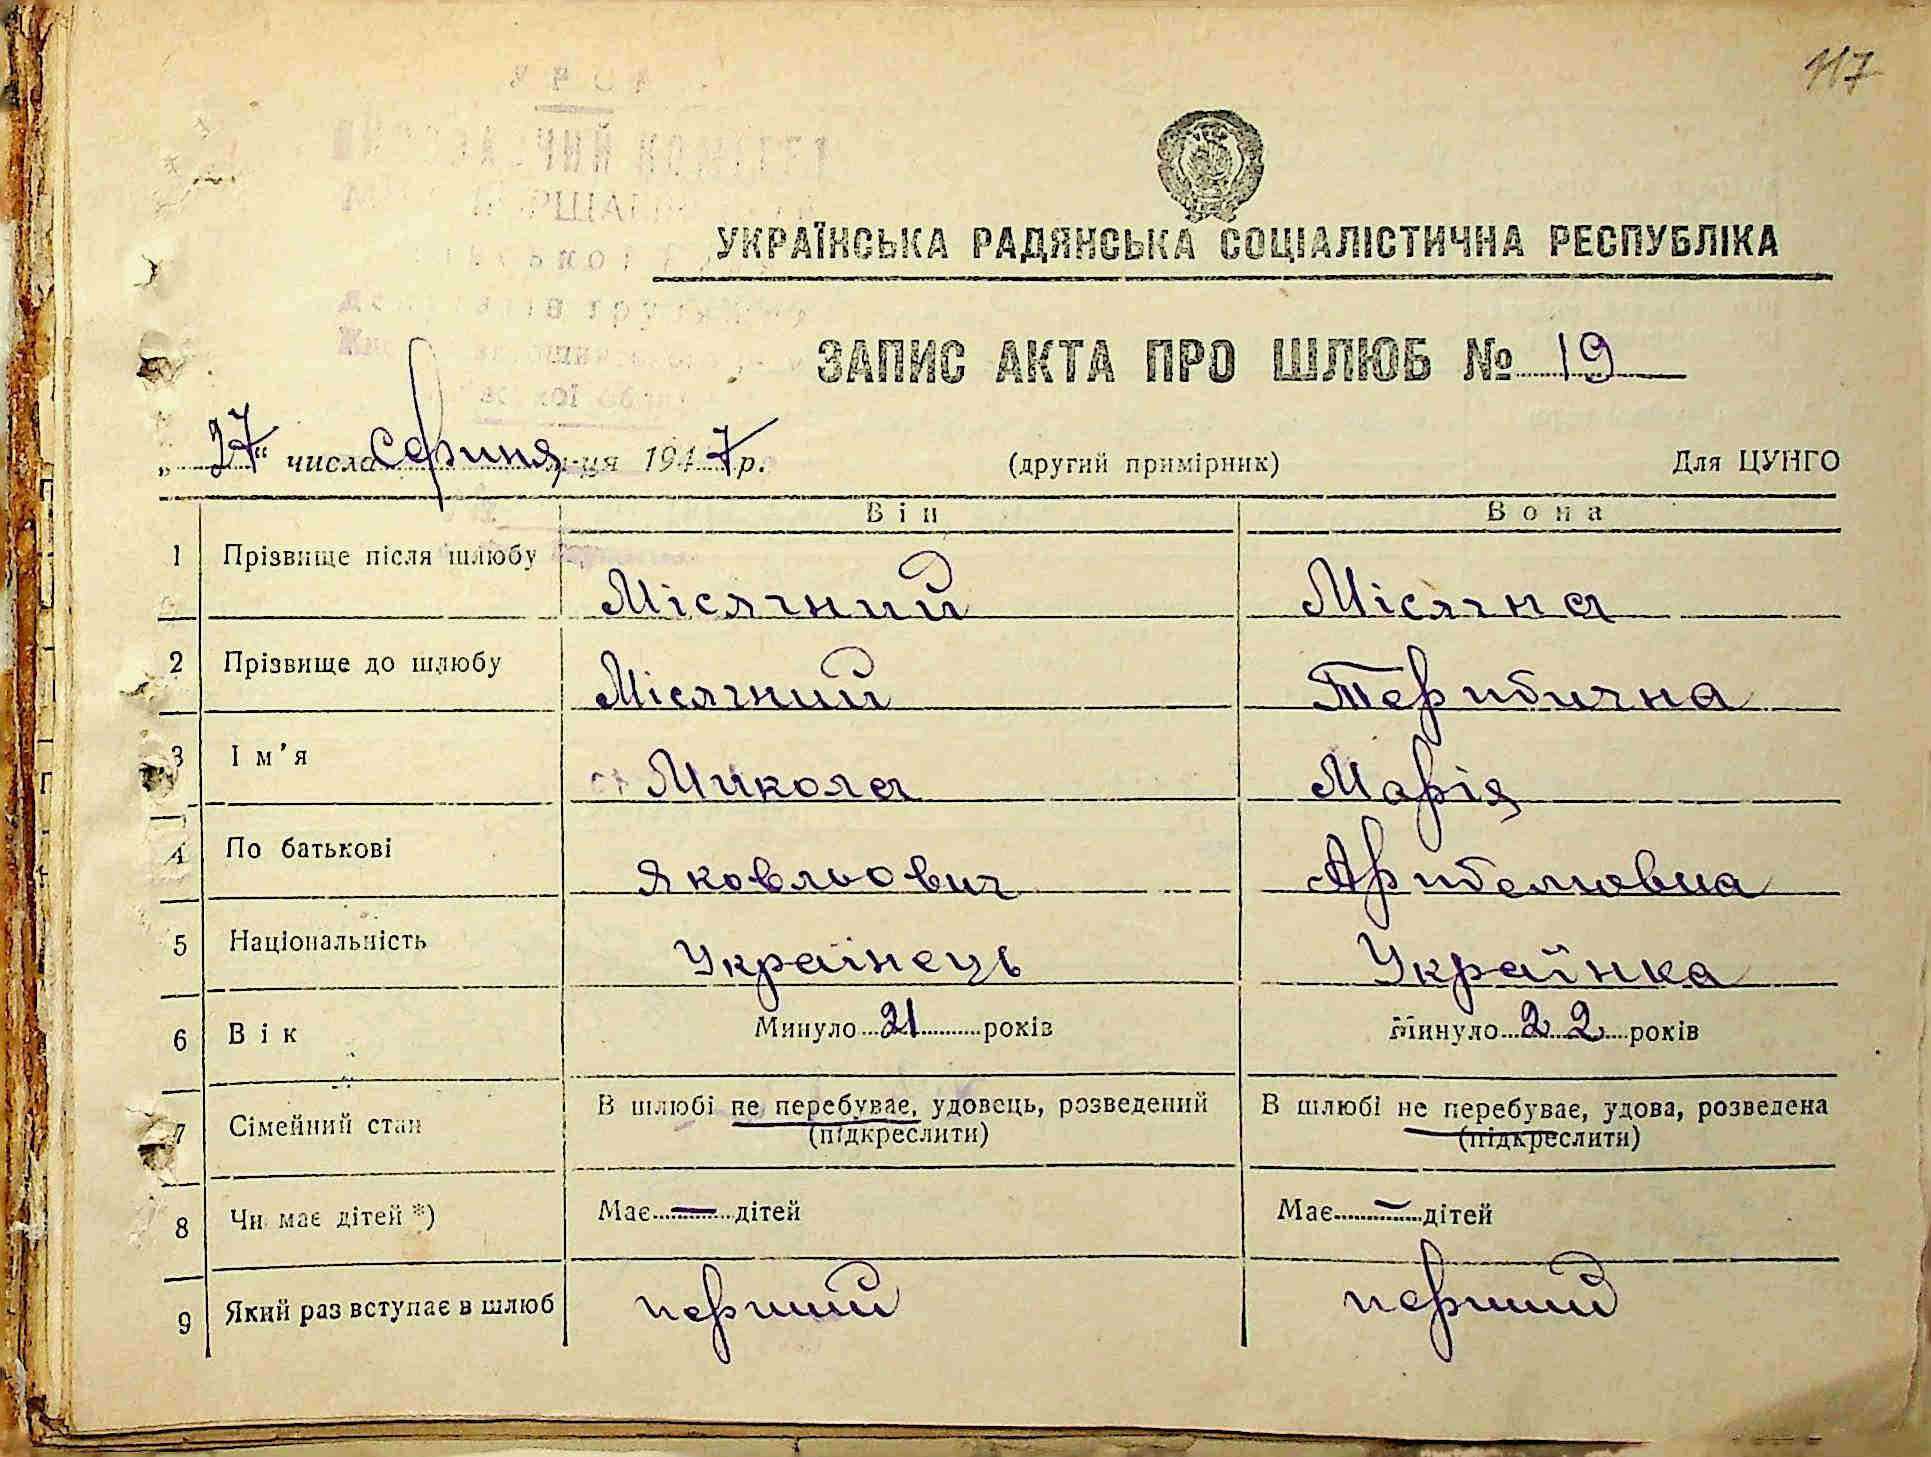 117
УКРАЇНСЬКА РАДЯНСЬКА СОЦІАЛІСТИЧНА РЕСПУБЛІКА
ЗАПИС АКТА ПРО ШЛЮБ № 19
„27“ числа серпня м-ця 1947 р. (другий примірник) Для ЦУНГО
Він Вона
1 Прізвище після шлюбу Місячний Місячна
2 Прізвище до шлюбу Місячний
3 Ім’я Микола Марія
4 По батькові Яковльович
5 Національність Українець Українка
6 Вік Минуло 21 років Минуло 22 років
7 Сімейний стан В шлюбі не перебуває, удовець, розведений В шлюбі не перебуває, удова, розведена
(підкреслити) (підкреслити)
8 Чи має дітей *) Має — дітей Має — дітей
9 Який раз вступає в шлюб перший перший